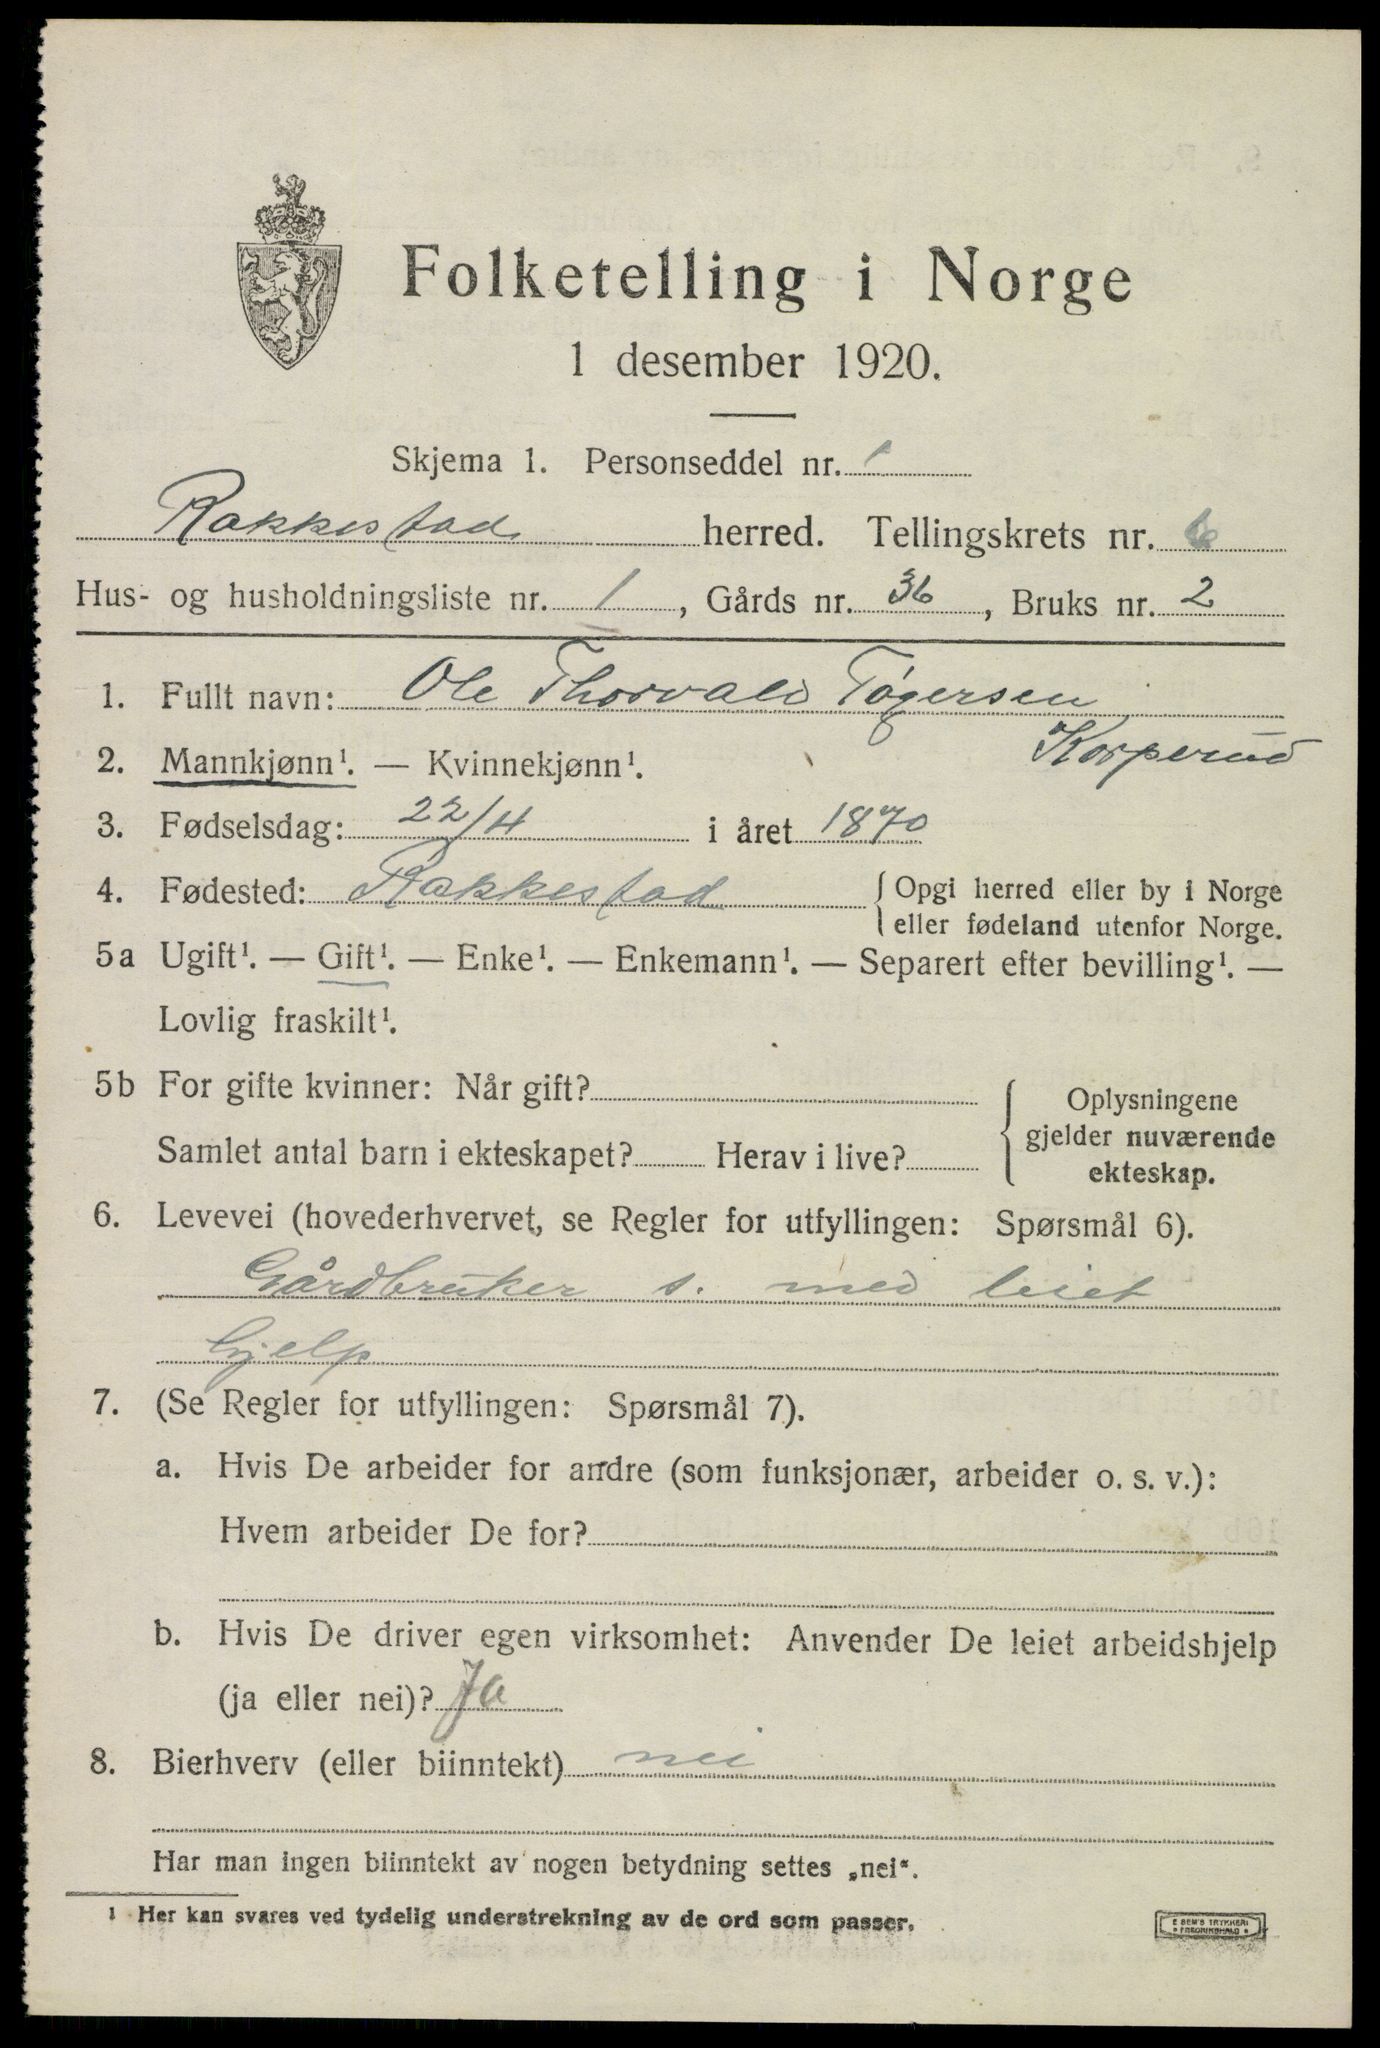 Folketelling i Norge
1 desember 1920.
Skjema 1. Personseddel nr. 1
Rakkestad herred. Tellingskrets nr. 6
Hus- og husholdningsliste nr. 1, Gårds nr. 36, Bruks nr. 2
1. Fullt navn: Ole Thorvald Tøgersen
Korperud
2. Mannkjønn¹. — Kvinnekjønn¹.
3. Fødselsdag: 22/4 i året 1870
4. Fødested: Rakkestad { Opgi herred eller by i Norge
eller fødeland utenfor Norge.
5a Ugift¹. — Gift¹. — Enke¹. — Enkemann¹. — Separert efter bevilling¹. —
Lovlig fraskilt¹.
5b For gifte kvinner: Når gift?
Samlet antal barn i ekteskapet? Herav i live?
{ Oplysningene
gjelder nuværende
ekteskap.
6. Levevei (hovederhvervet, se Regler for utfyllingen: Spørsmål 6).
Gårdbruker s. med leiet
hjelp
7. (Se Regler for utfyllingen: Spørsmål 7).
a. Hvis De arbeider for andre (som funksjonær, arbeider o. s. v.):
Hvem arbeider De for?
b. Hvis De driver egen virksomhet: Anvender De leiet arbeidshjelp
(ja eller nei)? Ja
8. Bierhverv (eller biinntekt) nei
Har man ingen biinntekt av nogen betydning settes „nei“.
1 Her kan svares ved tydelig understrekning av de ord som passer.
E SEM'S TRYKKERI
FREDRIKSHALD